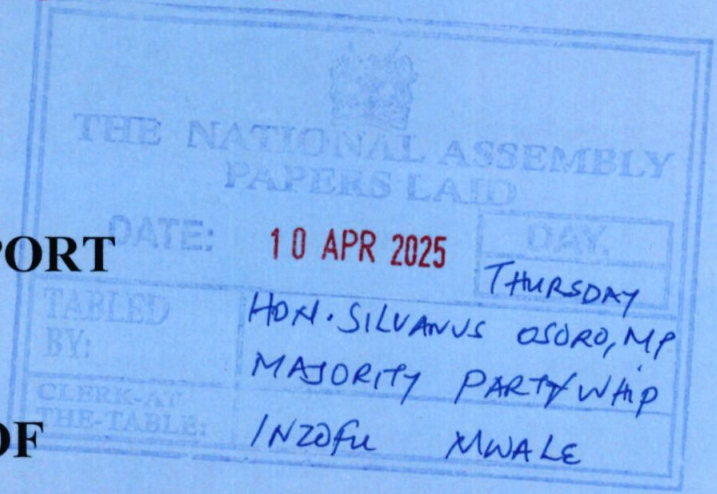 THE NATIONAL ASSEMBLY
PAPERS LAID
DATE: 10 APR 2025
DAY.
THURSDAY
TABLED
BY:
HON. SILVANUS OSORO, MP
MAJORITY PARTY WHIP
CLERK-AT
THE-TABLE:
INZOFU MWALE
PORT
OF